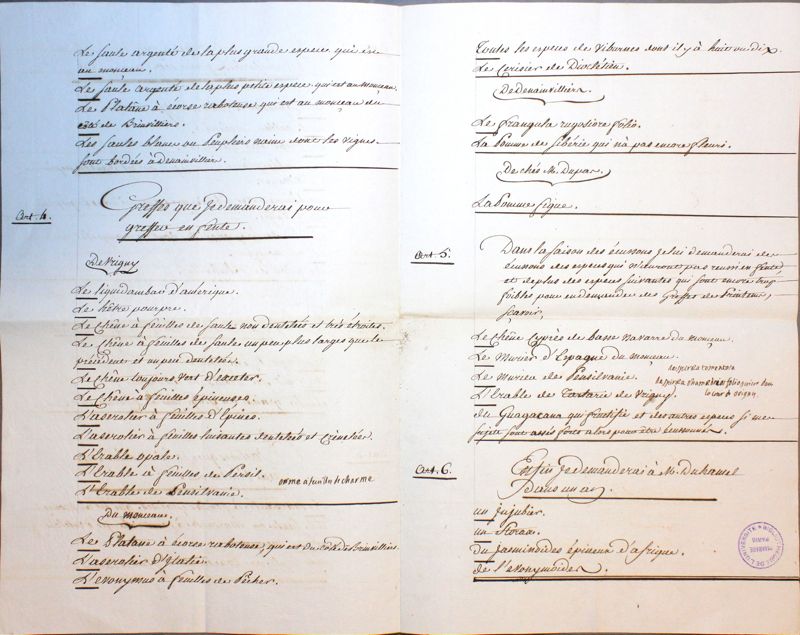 Le saule argenté de la plus grande espece qui est
au monceau.
Le saule argenté de la plus petite espece qui est au monceau.
Le Platane à ecorse raboteuse qui est au monceau du
côté de Brinvilliers.
Les saules blancs ou Peupliers nains dont les vignes
sont bordées à Denainvillier.
Art. 4.
Greffes que Je demanderai pour
greffer en fente.
De Vrigny
Le liquidambar d'amerique.
Le hêtre pourpre.
Le Chêne à feuilles de saule non dentelées et très étroites.
Le Chêne à feuilles de saule un peu plus larges que le
précédent et un peu dentelées.
Le Chêne toujours vert d'exeter.
Le Chêne à feuilles épineuses.
L'azerolier à feuilles d'Epines.
L'azerolier à feuilles luisantes dentelées et
L'Erable opale.
L'Erable à feuilles de Persil.
L'Erable de Pensilvanie.
orme a feuille de charme
Du monceau.
Le Platane à ecorse raboteuse, qui est du côté des Brinvilliers.
L'azerolier d'Italie.
L'evonymus à feuilles de Pêcher.
Toutes les especes de Viburnes dont il y à huit ou dix.
Le Cerisier de Diocletien.
De Denainvilliers.
Le frangula rugosiore folio.
La Pomme de Sibérie qui n'a pas encore fleuri.
De chés M. Dupar.
La Pomme figue.
Art. 5.
Dans la saison des écussons je lui demanderai des
écussons des especes qui n'auront pas reussi en fente,
et de plus des especes suivantes qui sont encore trop
foibles pour en demander des Greffes de Printems,
sçavoir,
Le Chêne Cyprès de basse navarre du monceau.
Le Murier d'Espagne du monceau.
Le Murier de Pensilvanie.
le spirea tomentosa
L'Erable de Tartarie de Vrigny.
du Guayacana qui fructifie et des autres especes si mes
sujets sont assés forts alors pour être écussonnés.
Art. 6.
Enfin Je demanderai à M. Duhamel
Dans un an.
un Jujubier.
un Storax.
Du Jasminoides épineux d'afrique.
de l'evonymoides.